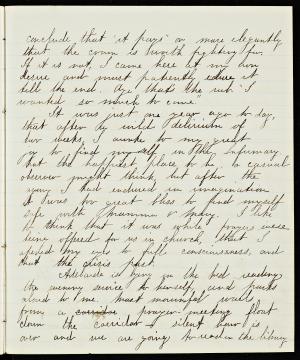 conclude that "it pays" or more elegantly
that the crown is worth fighting for.
If it is not, I came here at my own
desire and must patiently endure it
till the end. Aye that's the rub "I
wanted so much to come"
It was just one year ago to day,
that after my wild delirium of
two weeks, I awoke to my great
joy to find myself in the Infirmary
not the happiest place to be a casual
observer might think, but after the
agony I had endured in imagination
it was far great bliss to find myself
safe with Mamma & Mary. I like
to think that it was while prayers were
being offered for us in church, that I
opened my eyes to full consciousness, and
that the crisis past.
Adelaide is lying on the bed reading
the evening service to herself and parts
aloud to me. Most mournful wails
from a corridor prayer-meeting float
down the corridor & silent hour is
over and we are going to reach the library